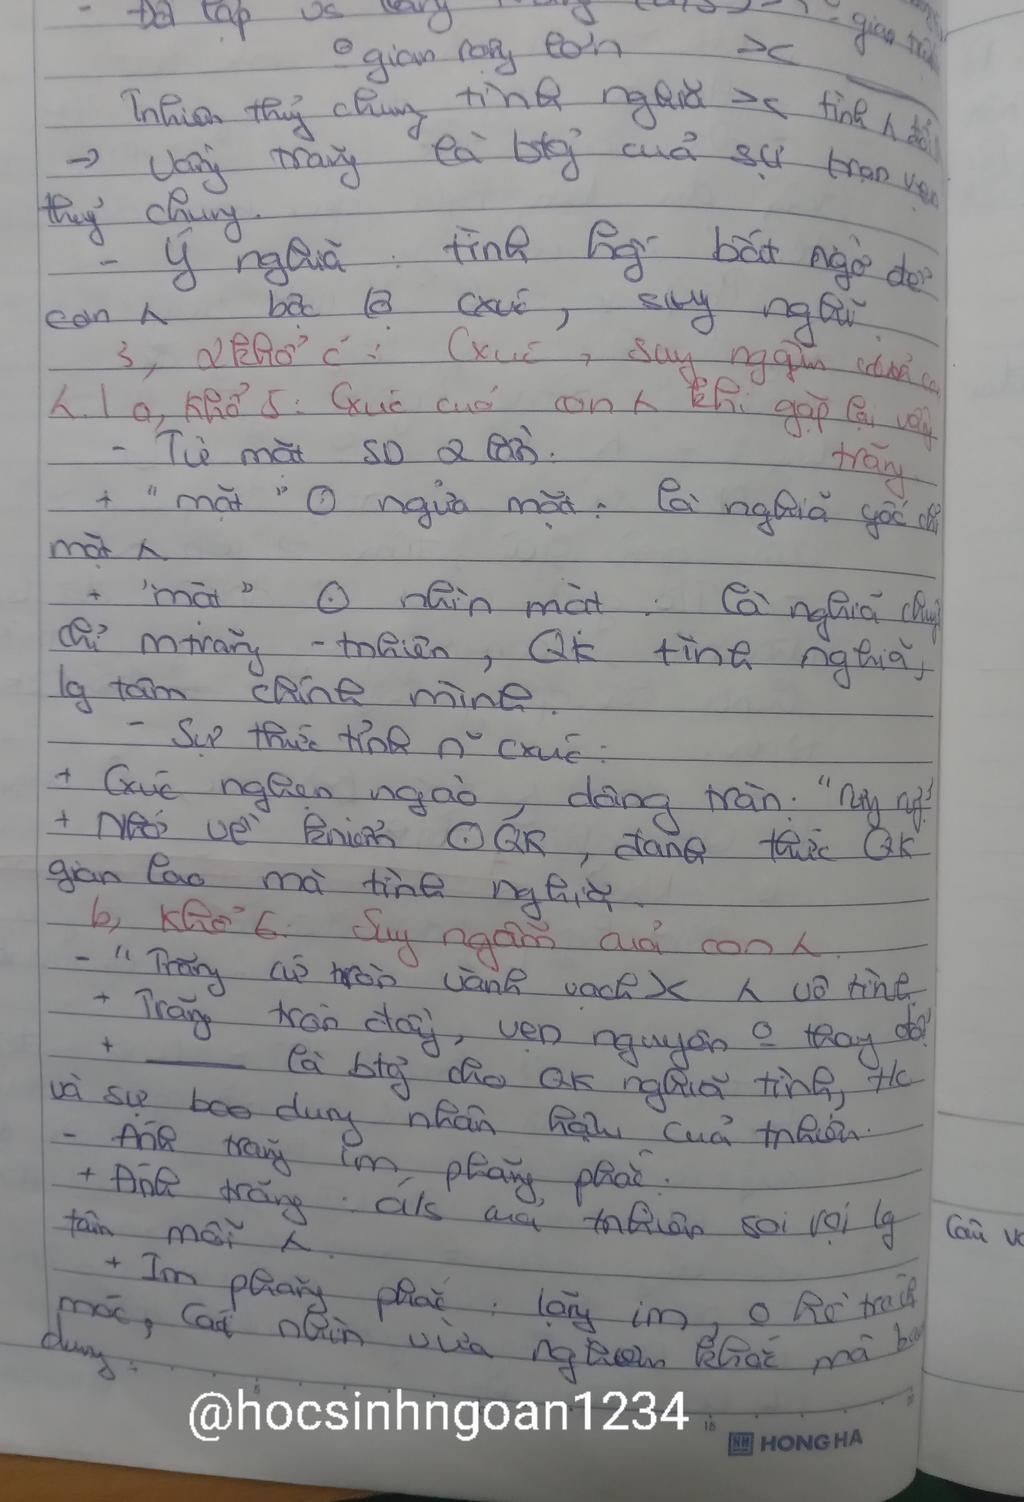 - Đối lập vs
gian rộng lớn ><
Thiên thuỷ chung tình nghĩa >< tình
→ Vầng trăng là btg̉ cuả sự trọn vẹn
thuỷ chung.
- Ý nghĩa. tình h́g bất ngờ để
con λ bộc lộ cxúc, suy nghĩ
3, 2 khổ c: Cxúc, suy ngẫm
a, Khổ 5: Cxúc cuả con λ khi gặp lại vầng
trăng
- Từ mặt SD 2 lần.
+ "mặt" ⊙ ngửa mặt: là nghĩa gốc chỉ
mặt λ
+ "mặt" ⊙ nhìn mặt. là nghĩa
chỉ mtrăng - tnhiên, QK tình nghĩa,
lg tâm chính mình.
- Sự thức tỉnh n~ cxúc:
+ Cxúc nghẹn ngào, dâng trào:
+ Nhớ về ⊙ QK, đánh thức QK
gian lao mà tình nghĩa.
b, Khổ 6. Suy ngẫm cuả con λ.
- "Trăng cứ tròn vành vạch >< λ vô tình
+ Trăng tròn đầy, vẹn nguyên o thay đổi
+ —— là btg̉ cho QK nghĩa tình,
và sự bao dung nhân hậu cuả tnhiên.
- Ánh trăng im phăng phắc.
+ Ánh trăng: cuả tnhiên soi rọi lg
tâm mỗi λ.
+ Im phăng phắc: lặng im, o hề trách
móc, Cái nhìn vừa nghiêm khắc mà bao
dung.
Câu
@hocsinhngoan1234
HONG HA